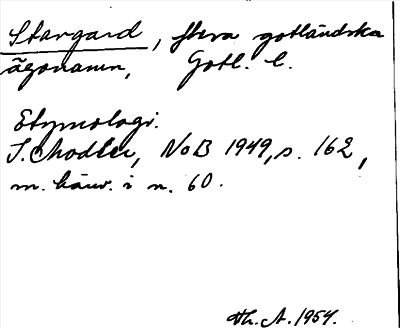 Stargard, flera gotländska
ägonamn, Gotl. l.
Etymologi.
I. Modéer, NoB 1949, s. 162,
m. hänv. i n. 60.
Th. A. 1954.